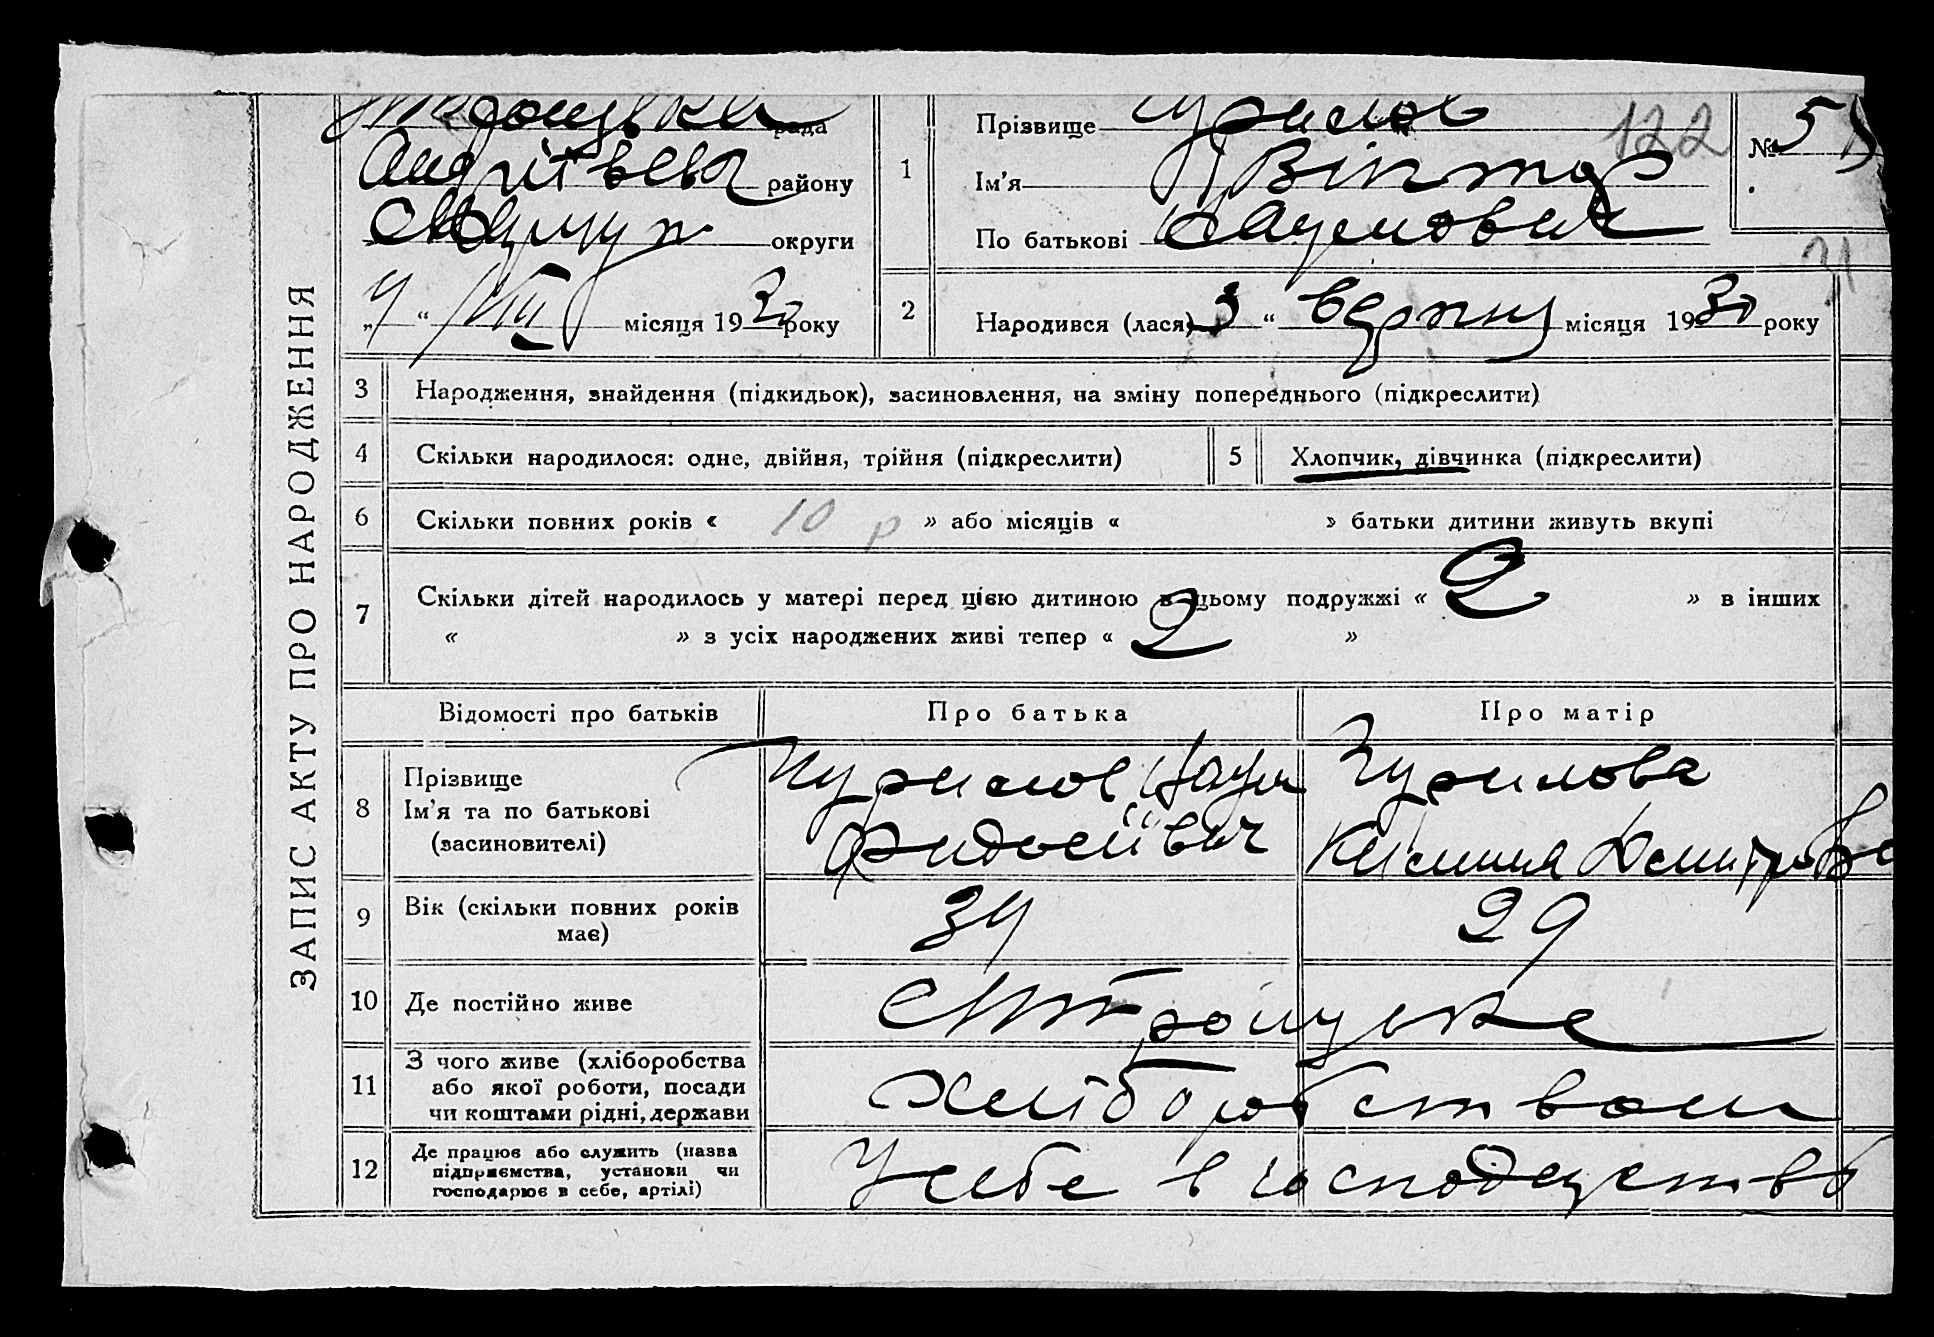 рада
району
округи
„ “ VIII місяця 1930 року
1
Прізвище
Ім’я Віктор
По батькові Наумович
122
№ 5
2
Народився (лася) 3 “ серпня місяця 1930 року
ЗАПИС АКТУ ПРО НАРОДЖЕННЯ
3 Народження, знайдення (підкидьок), засиновлення, на зміну попереднього (підкреслити)
4 Скільки народилося: одне, двійня, трійня (підкреслити)
5 Хлопчик, дівчинка (підкреслити)
6 Скільки повних років « 10 р » або місяців « » батьки дитини живуть вкупі
7 Скільки дітей народилось у матері перед цією дитиною в цьому подружжі « 2 » в інших
« » з усіх народжених живі тепер « 2 »
Відомості про батьків Про батька Про матір
8 Прізвище
Ім’я та по батькові
(засиновителі)
Гурилов Наум
Федосіївич
Гурилова
9 Вік (скільки повних років
має)
34 29
10 Де постійно живе
11 З чого живе (хліборобства
або якої роботи, посади
чи коштами рідні, держави
Хліборобством
12 Де працює або служить (назва
підприємства, установи чи
господарює в себе, артілі)
У себе в господарстві